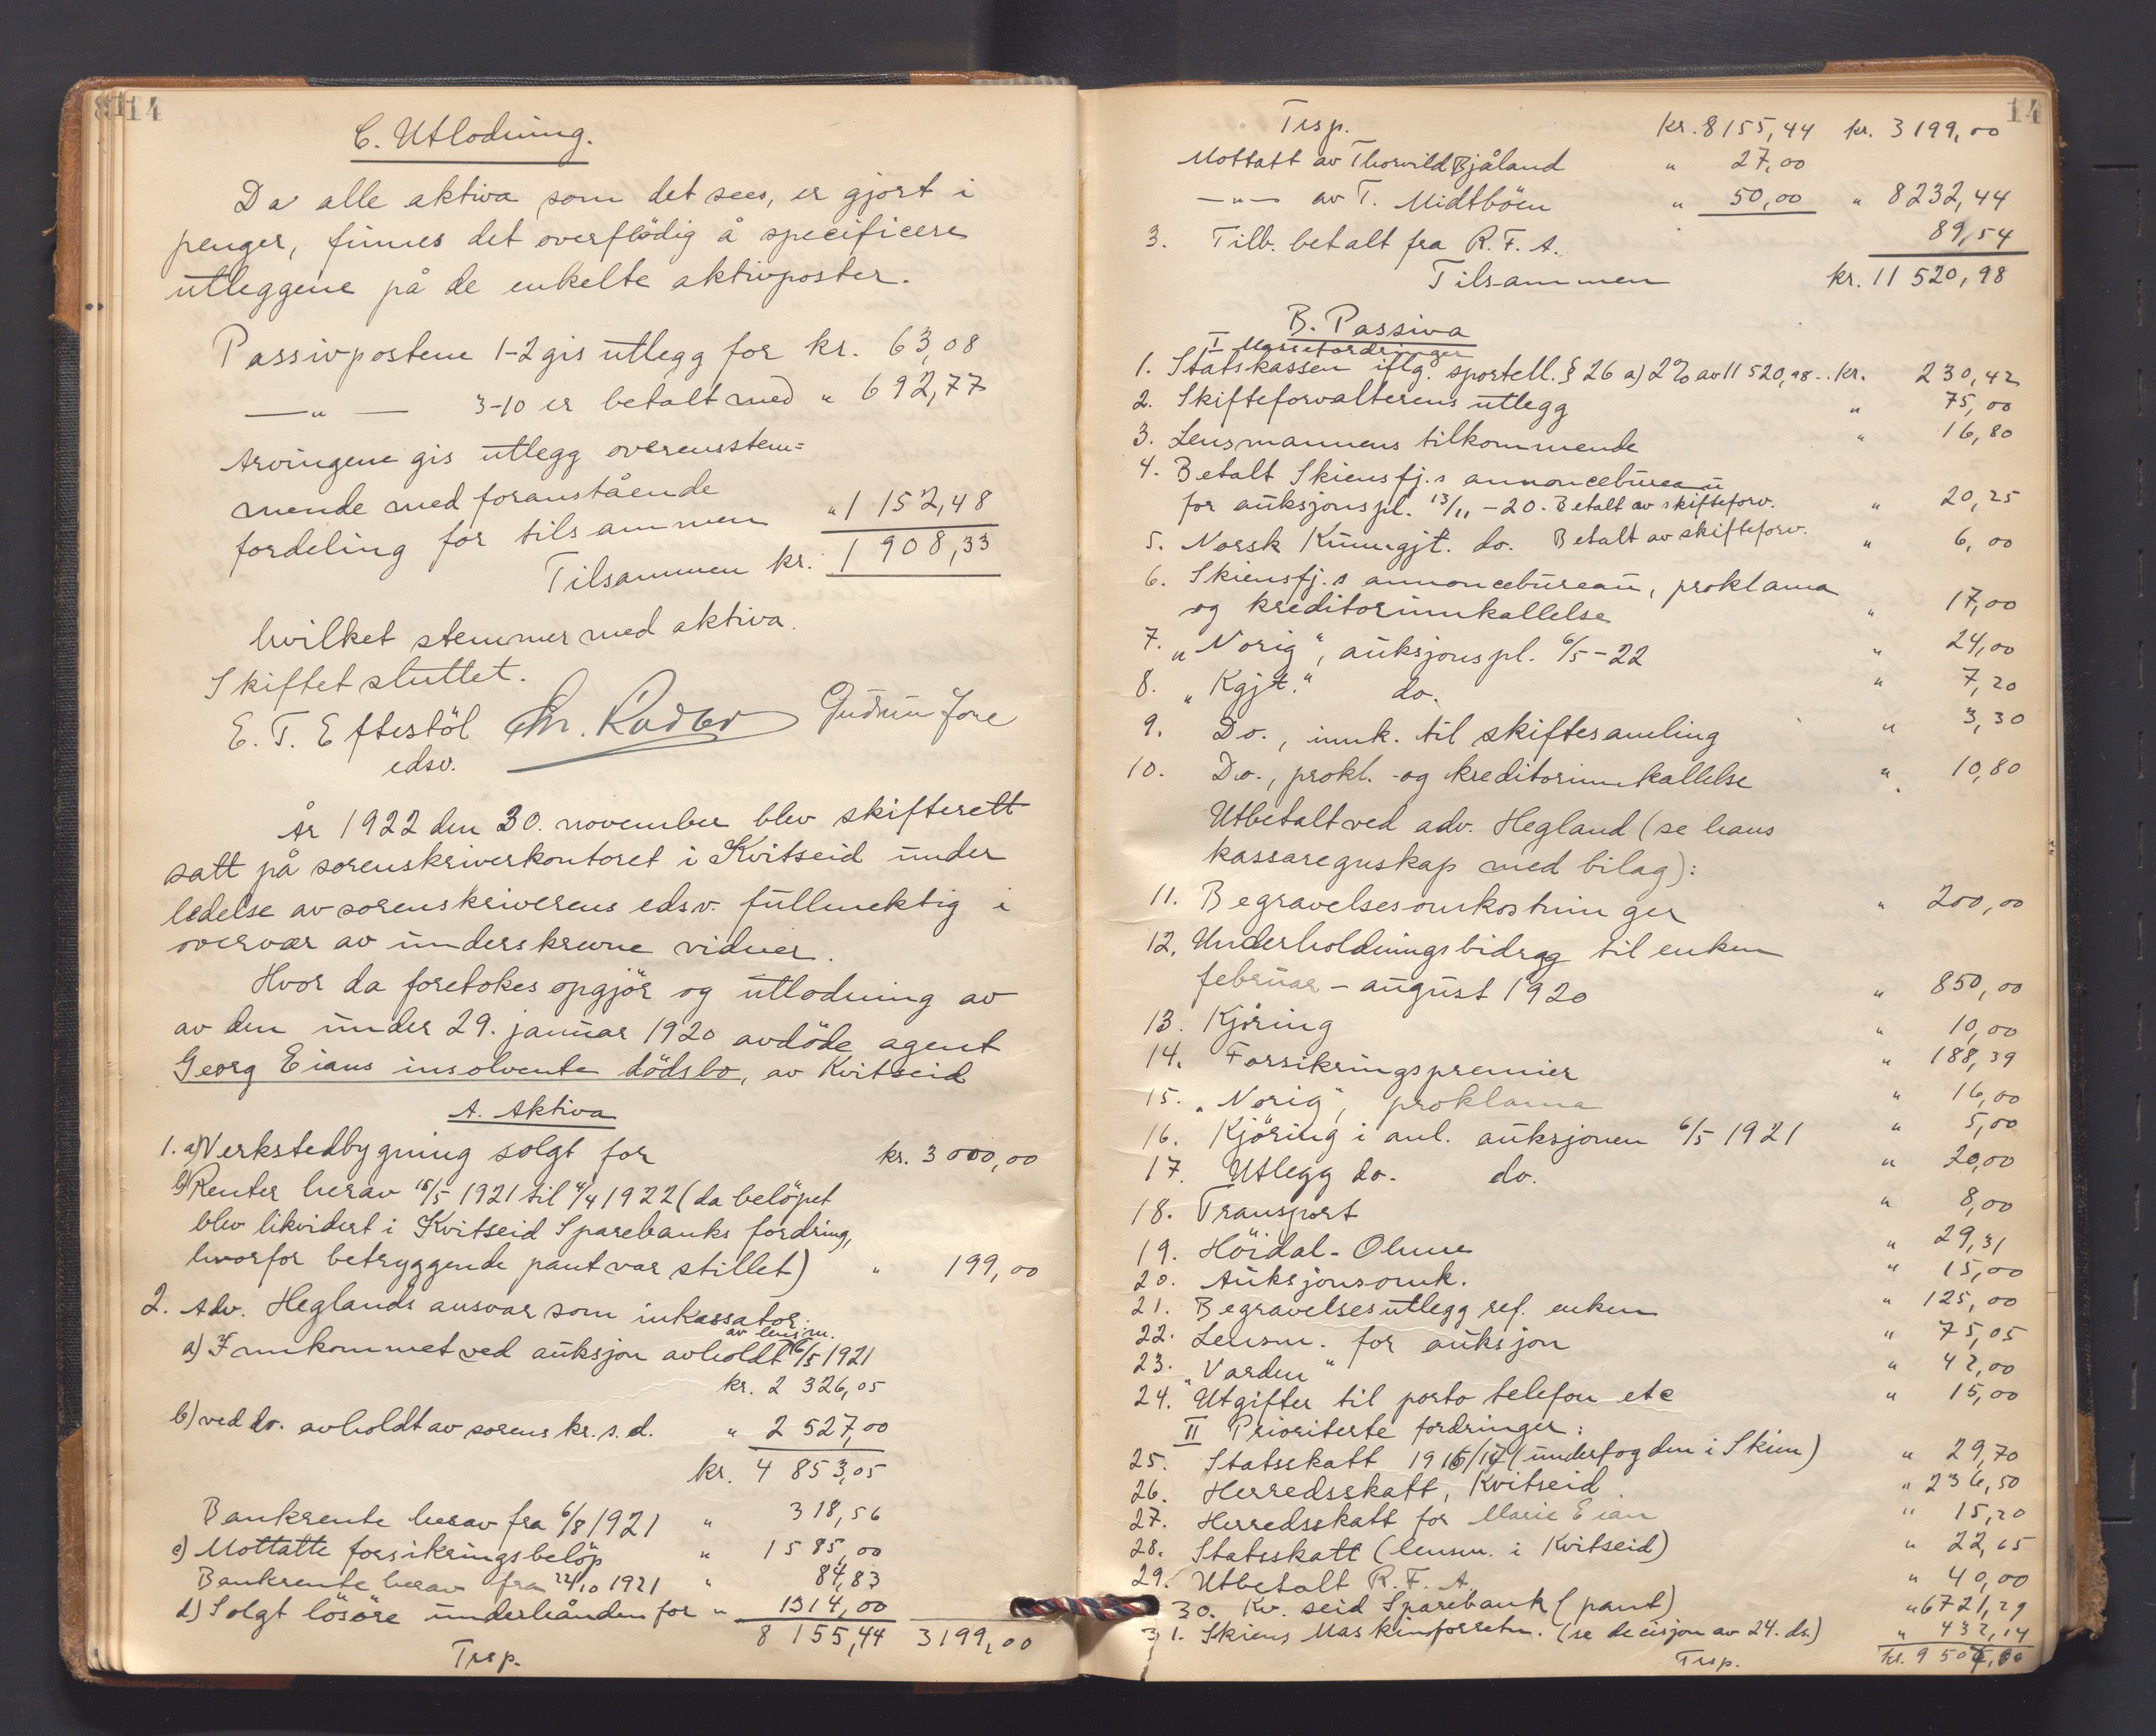 14
C. Utlodning.
Da alle aktiva som det sees, er gjort i
penger, finnes det overflödig å specificere
utleggene på de enkelte aktivposter.
Passivpostene 1-2 gis utlegg for kr. 63,08
—"— 3-10 er betalt med " 692,77
Arvingene gis utlegg overensstem=
mende med foranstående
fordeling for tilsammen " 1 152,48
Tilsammen kr. 1 908,33
hvilket stemmer med aktiva.
Skiftet sluttet.
E. T. Eftestöl Gudrun Jore
edsv.
År 1922 den 30. november blev skifterett
satt på sorenskriverkontoret i Kvitseid under
ledelse av sorenskriverens edsv. fullmektig i
overvær av underskrevne vidner.
Hvor da foretokes opgjör og utlodning av
av den under 29. januar 1920 avdöde agent
Georg Eians insolvente dödsbo, av Kvitseid
A. Aktiva
1. a) Verkstedbygning solgt for kr. 3 000,00
b) Renter herav 15/5 1921 til 4/4 1922 (da belöpet
blev likvidert i Kvitseid Sparebanks fordring,
hvorfor betryggende pant var stillet) " 199,00
2. Adv. Heglands ansvar som inkassator:
av lensm.
a) Innkommet ved auksjon avholdt 6/5 1921
kr. 2 326,05
b) ved do. avholdt av sorenskr. s. d. " 2 527,00
kr. 4 853,05
Bankrente herav fra 6/8 1921 " 318,56
c) Mottatte forsikringsbelöp " 1585,00
Bankrente herav fra 22/10 1921 " 84,83
d) Solgt lösöre underhånden for " 1314,00
8 155,44 3199,00
Trsp.
14
Trsp. kr. 8155,44 kr. 3199,00
Mottatt av Thorvild Bjåland " 27,00
—"— av T. Midtböen " 50,00 " 8232,44
3. Tilb. betalt fra R. F. A. 89,54
Tilsammen kr. 11 520,98
B. Passiva
I Massefordringer
1. Statskassen iflg. sportell. § 26 a) 2% av 11 520,98.. kr. 230,42
2. Skifteforvalterens utlegg " 75,00
3. Lensmannens tilkommende " 16,80
4. Betalt Skiensfj.s annoncebureau
for auksjonspl. 13/11 -20. Betalt av skifteforv. " 20,25
5. Norsk Kunngjt. do. Betalt av skifteforv. " 6,00
6. Skiensfj.s annoncebureau, proklama
og kreditorinnkallelse " 17,00
7. "Norig", auksjonspl. 6/5-22 " 24,00
8. "Kgjt." do. " 7,20
9. Do., innk. til skiftesamling " 3,30
10. Do., prokl.- og kreditorinnkallelse " 10,80
Utbetalt ved adv. Hegland (se hans
kassaregnskap med bilag):
11. Begravelsesomkostninger " 200,00
12. Underholdningsbidrag til enken
februar - august 1920 " 850,00
13. Kjöring " 10,00
14. Forsikringspremier " 188,39
15. "Norig", proklama " 16,00
16. Kjöring i anl. auksjonen 6/5 1921 " 5,00
17. Utlegg do. do. " 20,00
18. Transport " 8,00
19. Höidal-Ohme " 29,31
20. Auksjonsomk. " 15,00
21. Begravelsesutlegg ref. enken " 125,00
22. Lensm. for auksjon " 75,05
23. "Varden" " 42,00
24. Utgifter til porto telefon etc " 15,00
II Prioriterte fordringer:
25. Statsskatt (underfogden i Skien) " 29,70
26. Herredsskatt, Kvitseid " 236,50
27. Herredsskatt for Marie Eian " 15,20
28. Statsskatt (lensm. i Kvitseid) " 22,65
29. Utbetalt R. F. A. " 40,00
30. Kv. seid Sparebank (pant) " 6721,29
31. Skiens Maskinforretn. (se decisjon av 24. ds.) " 432,14
Trsp. kr. 9 504,00